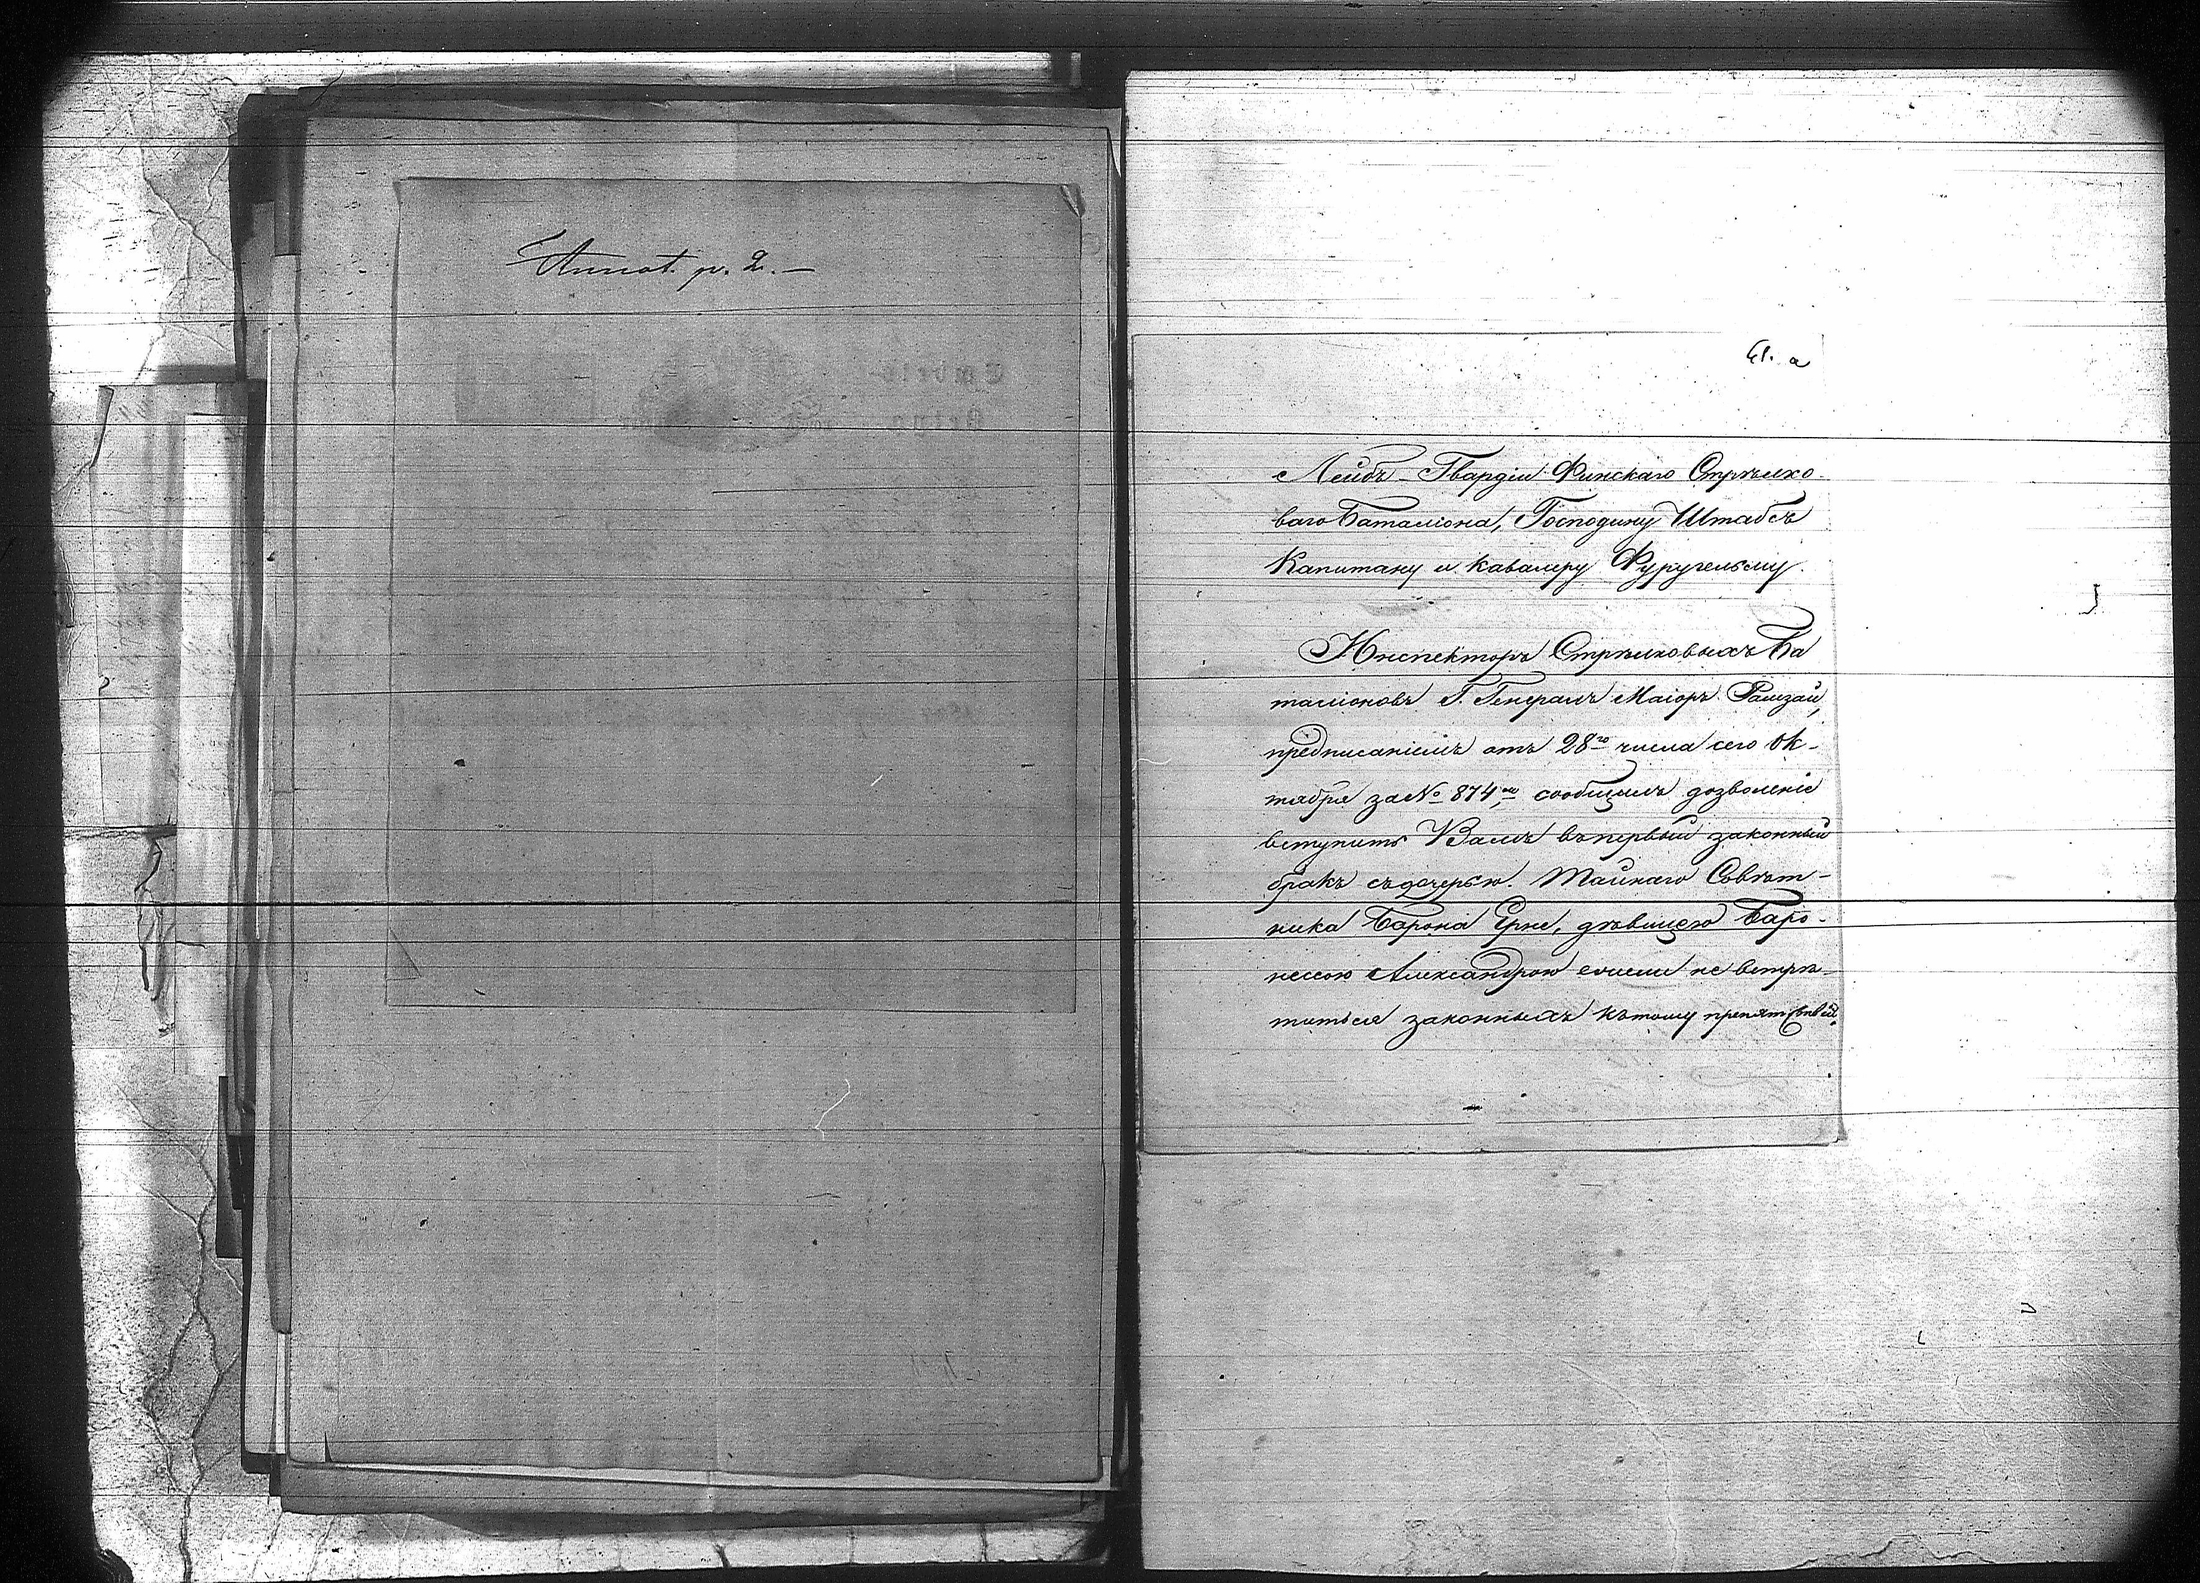 Annot. p. 2. —
41. a
Лейбъ-Гвардіи Финскаго Стрѣлко-
ваго Баталіона, Господину Штабсъ
Капитану и кавалеру Фуругельму.
Инспекторъ Стрѣлковыхъ Ба
таліоновъ Г. Генералъ Маіоръ Рамзай,
предписаніемъ отъ 28го числа сего Ок-
тября за № 874, сообщилъ дозволеніе
вступить Вамъ въ первый законный
бракъ съ дочерью Тайнаго Совѣт-
ника Барона Ерне, дѣвицею Баро-
нессою Александрою если не встрѣ-
титься законныхъ къ тому препятствій.